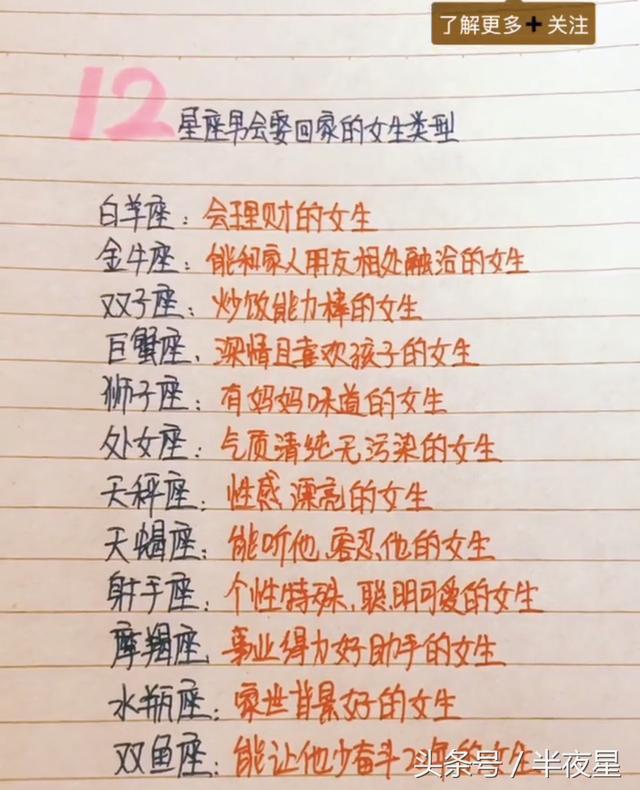 了解更多+关注
12星座男会娶回家的女生类型
白羊座：会理财的女生
金牛座：能和家人朋友相处融洽的女生
双子座：炒饭能力棒的女生
巨蟹座、深情且喜欢孩子的女生
狮子座：有妈妈味道的女生
处女座：气质清纯无污染的女生
天秤座：性感漂亮的女生
天蝎座：能听他、容忍他的女生
射手座：个性特殊、聪明可爱的女生
摩羯座、事业得力好助手的女生
水瓶座：家世背景好的女生
双鱼座：能让他少奋斗20年的女生
头条号/半夜星